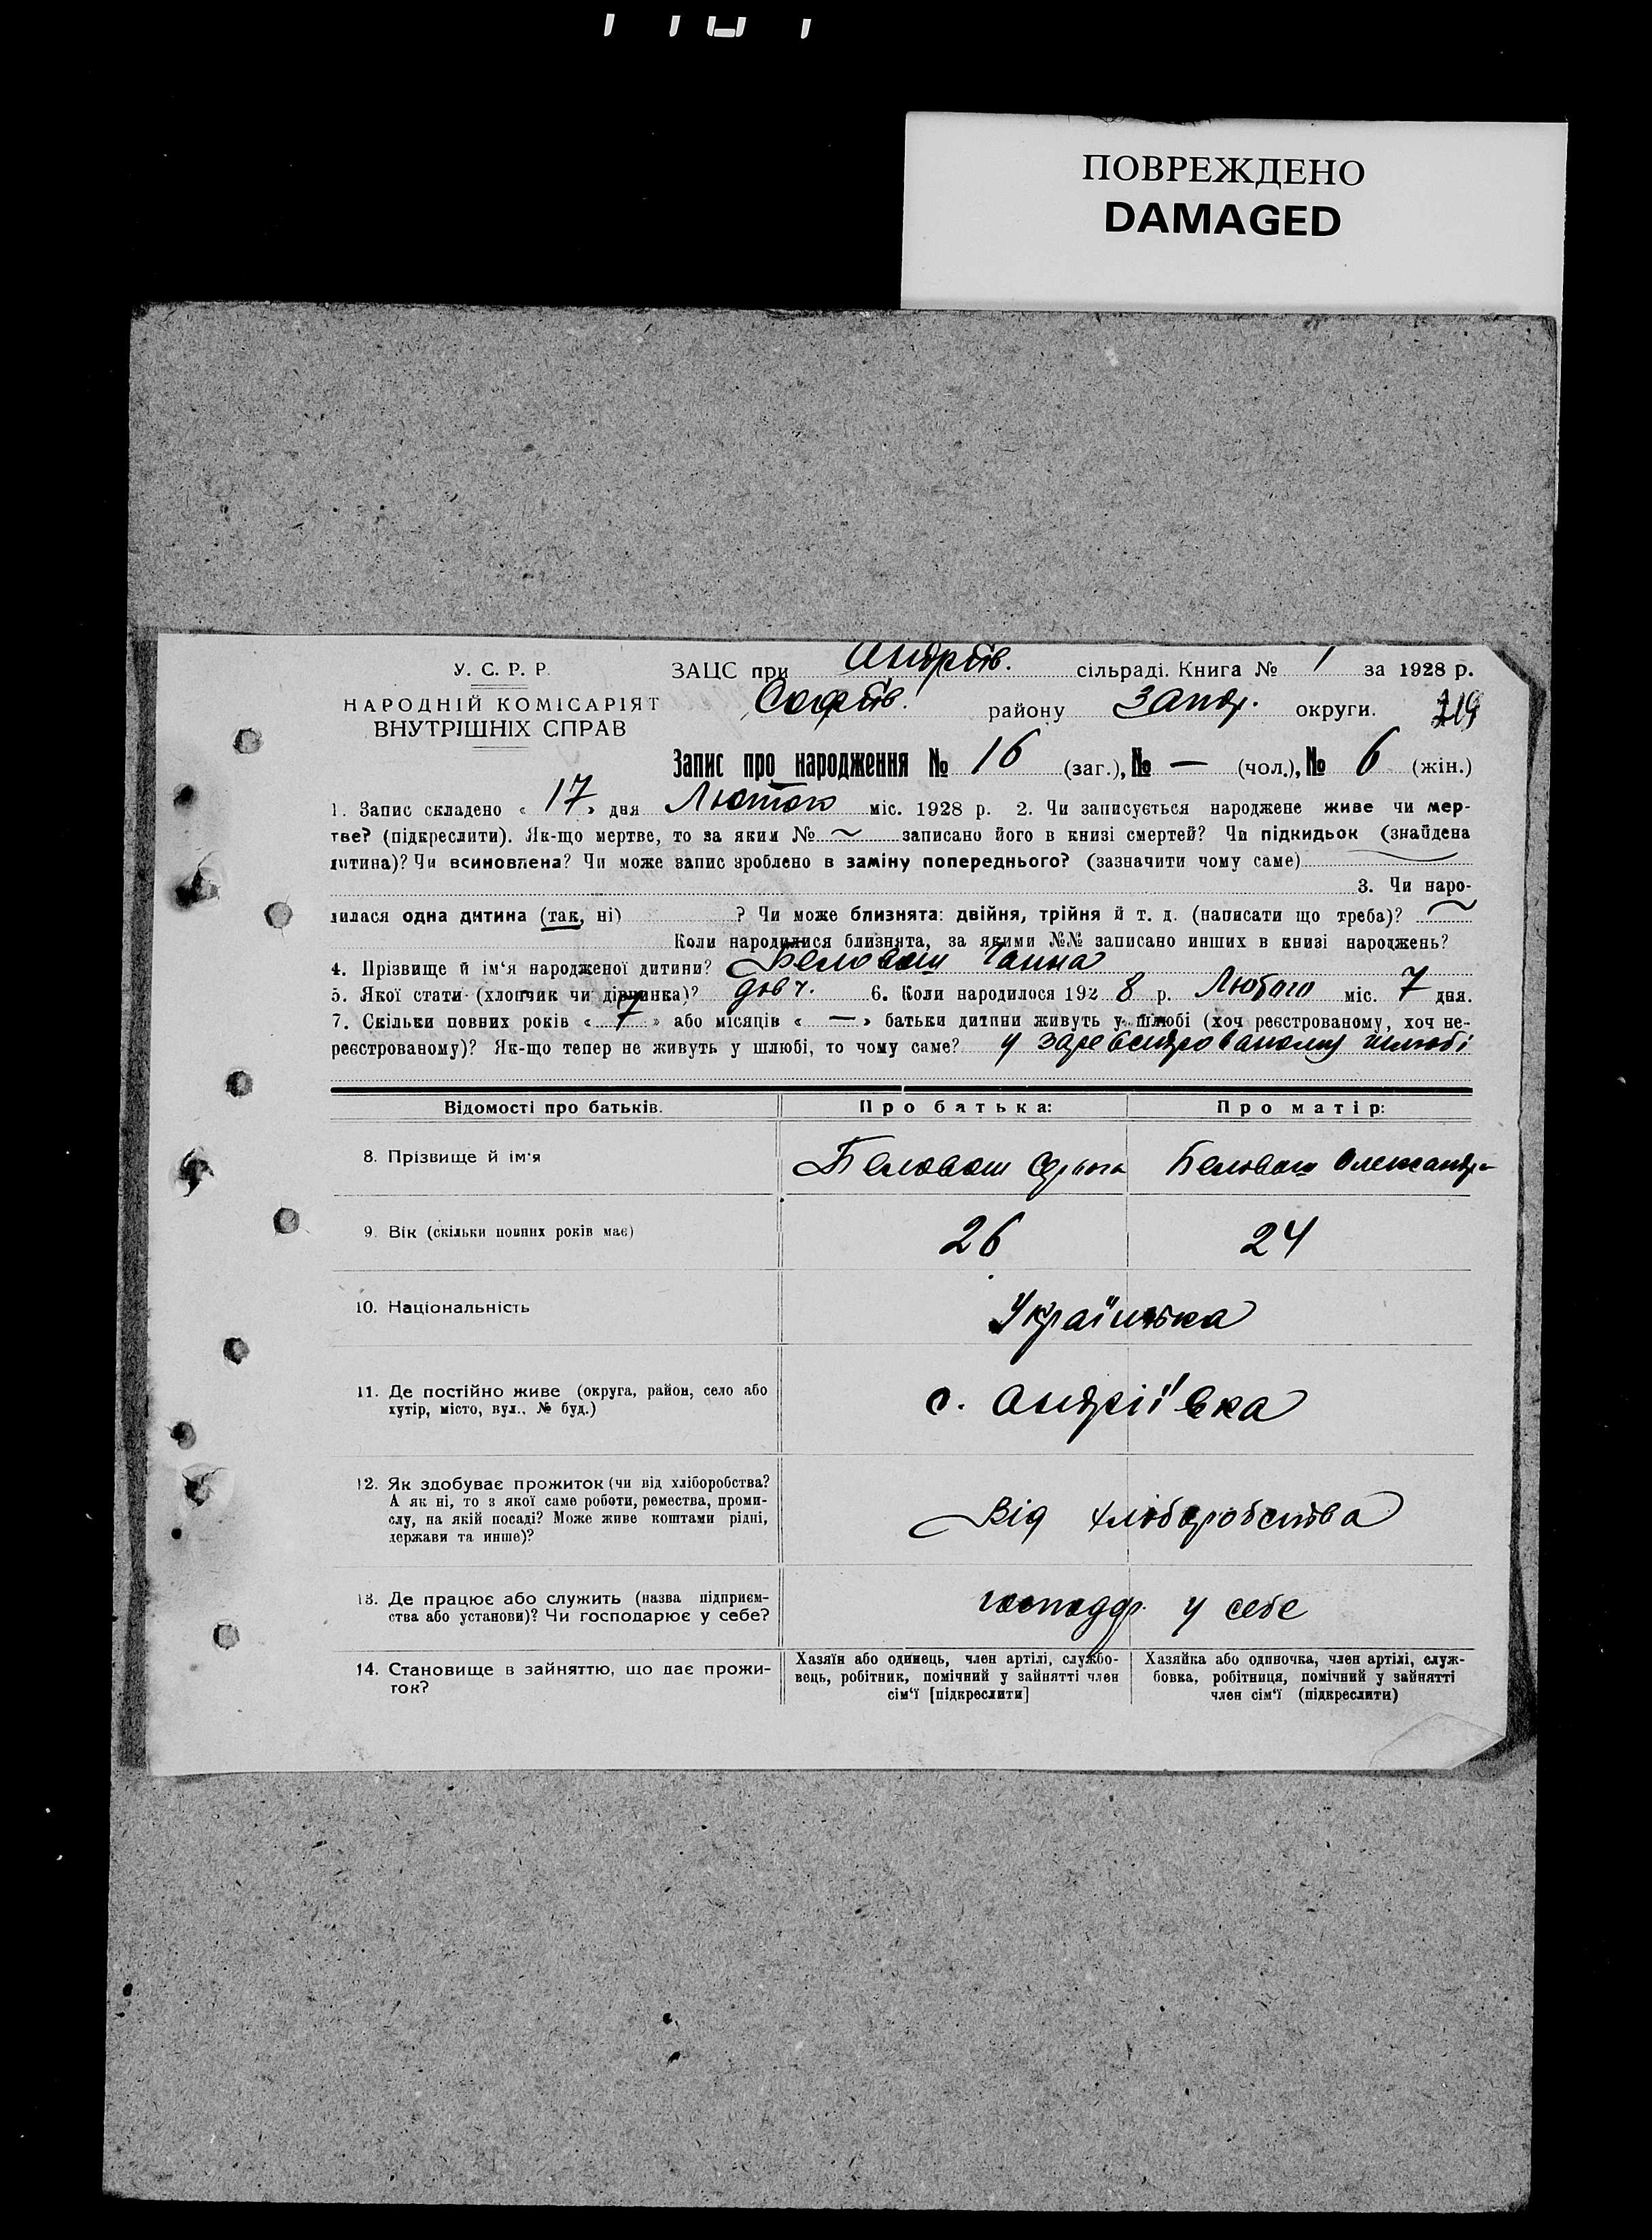 ПОВРЕЖДЕНО
DAMAGED
У. С. Р. Р.
НАРОДНІЙ КОМІСАРІЯТ
ВНУТРІШНІХ СПРАВ
ЗАЦС при Андріїв. сільраді. Книга № 1 за 1928 р.
Софіїв. району Запор. округи. 219
Запис про народження № 16 (заг.), № — (чол.), № 6 (жін.)
1. Запис складено « 17 » дня Лютого міс. 1928 р. 2. Чи записується народжене живе чи мер-
тве? (підкреслити). Як-що мертве, то за яким № ~ записано його в книзі смертей? Чи підкидьок (знайдена
дитина)? Чи всиновлена? Чи може запис зроблено в заміну попереднього? (зазначити чому саме)
3. Чи наро-
дилася одна дитина (так, ні) ? Чи може близнята: двійня, трійня й т. д. (написати що треба)? ~
Коли народилися близнята, за якими №№ записано инших в книзі народжень?
4. Прізвище й ім'я народженої дитини? Беловош Ганна
5. Якої стати (хлопчик чи дівчинка)? дівч. 6. Коли народилося 1928 р. Лютого міс. 7 дня.
7. Скільки повних років « 7 » або місяців « — » батьки дитини живуть у шлюбі (хоч реєстрованому, хоч не-
реєстрованому)? Як-що тепер не живуть у шлюбі, то чому саме? у зареєстрованому шлюбі
Відомості про батьків. Про батька: Про матір:
8. Прізвище й ім'я Беловош Беловош Олександра
9. Вік (скільки повних років має) 26 24
10. Національність Українська
11. Де постійно живе (округа, район, село або
хутір, місто, вул., № буд.) с. Андріївка
12. Як здобуває прожиток (чи від хліборобства?
А як ні, то з якої саме роботи, ремества, проми-
слу, на якій посаді? Може живе коштами рідні,
держави та инше)? Від хліборобства
13. Де працює або служить (назва підприєм-
ства або установи)? Чи господарює у себе? господар. у себе
14. Становище в зайняттю, що дає прожи-
ток?
Хазяїн або одинець, член артілі, службо-
вець, робітник, помічний у зайнятті член
сім'ї [підкреслити]
Хазяйка або одиночка, член артілі, служ-
бовка, робітниця, помічний у зайнятті
член сім'ї (підкреслити)